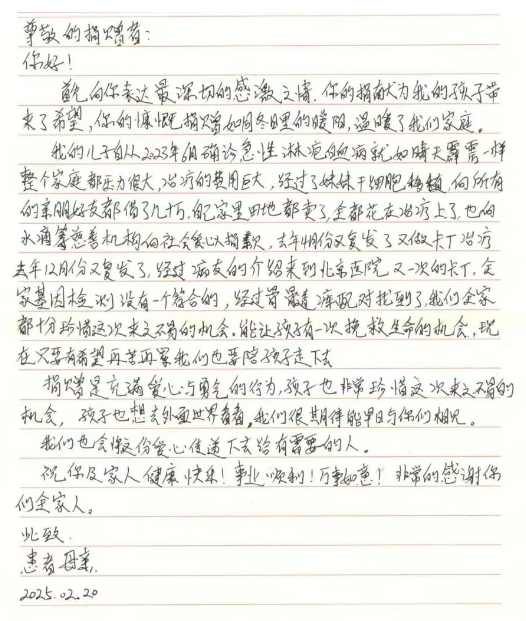 尊敬的捐赠者：
你好！
首先向你表达最深切的感激之情，你的捐献为我的孩子带
来了希望，你的慷慨捐赠如同冬日里的暖阳，温暖了我们家庭。
我的儿子自从2023年 确诊急性淋巴白血病就如晴天霹雳一样
整个家庭都压力很大，治疗的费用巨大，经过了妹妹干细胞移植，向所有
的亲朋好友都借了几十万，自己家里田地都卖了，全都花在治疗上了，也向
水滴筹慈善机构向社会爱心人捐款，去年4月份又复发了又做卡T治疗
去年12月份又复发了，经过病友的介绍来到北京医院又一次的卡T，全
家基因检测没有一个符合的，经过骨髓库配对找到了，我们全家
都十分珍惜这次来之不易的机会。能让孩子有一次挽救生命的机会，现
在只要有希望再苦再累我们也要陪孩子走下去
捐赠是充满爱心与勇气的行为，孩子也非常珍惜这次来之不易的
机会，孩子也想去外面世界看看。我们很期待能早日与你们相见。
我们也会将这份爱心传递下去给有需要的人。
祝你及家人健康快乐！事业顺利！万事如意！非常的感谢你
们全家人。
此致．
患者母亲．
2025.02.20